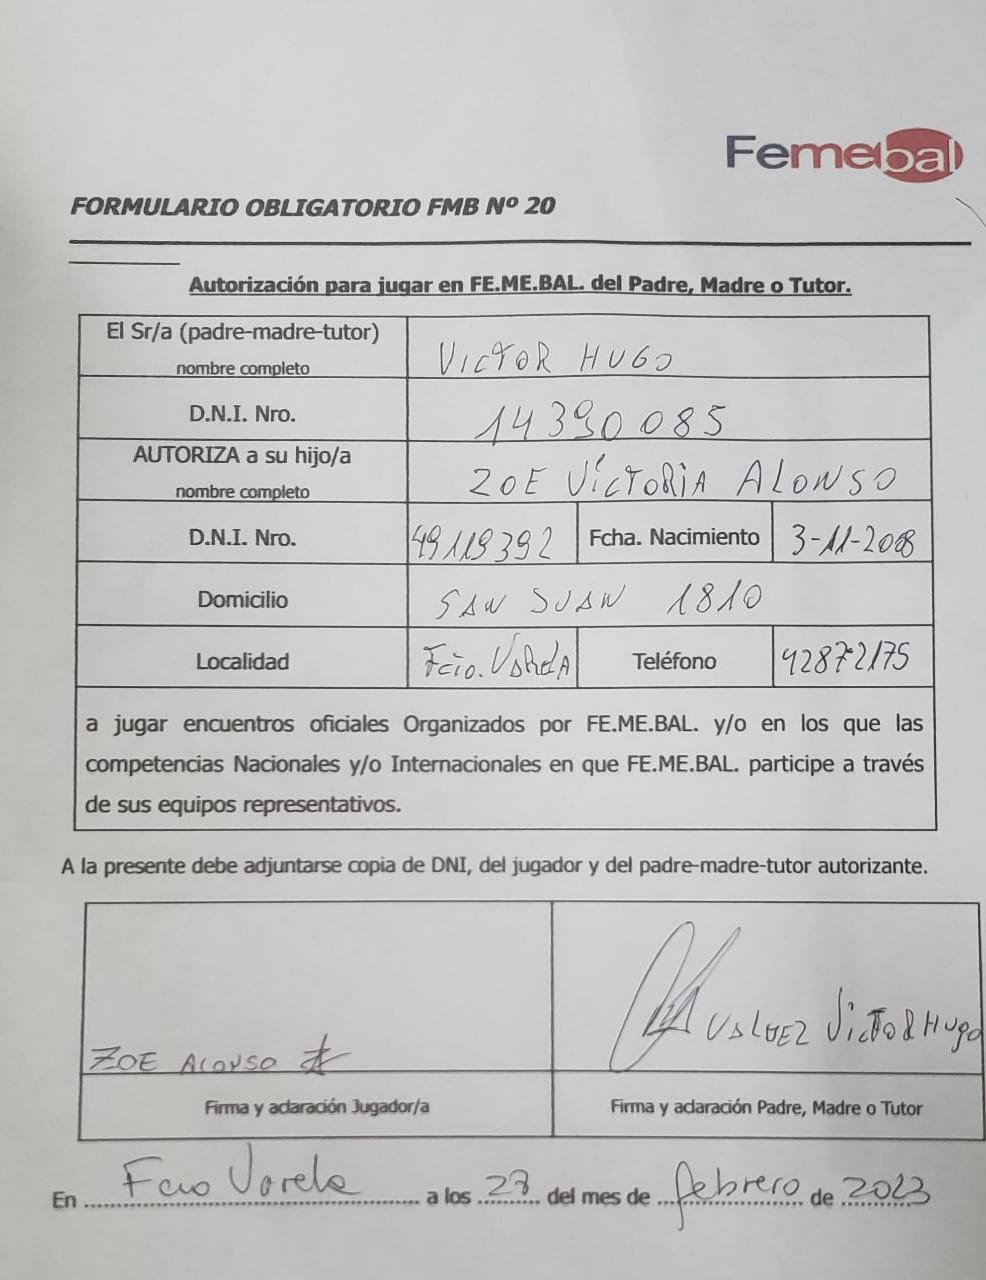 Femebal
FORMULARIO OBLIGATORIO FMB Nº 20
Autorización para jugar en FE.ME.BAL. del Padre, Madre o Tutor.
El Sr/a (padre-madre-tutor)
nombre completo
VICTOR HUGO
D.N.I. Nro.
14390085
AUTORIZA a su hijo/a
nombre completo
ZOE VICTORIA ALONSO
D.N.I. Nro.
49119392
Fcha. Nacimiento
3-11-2008
Domicilio
SAN JUAN 1810
Localidad
Fcio. VARELA
Teléfono
42872175
a jugar encuentros oficiales Organizados por FE.ME.BAL. y/o en los que las
competencias Nacionales y/o Internacionales en que FE.ME.BAL. participe a través
de sus equipos representativos.
A la presente debe adjuntarse copia de DNI, del jugador y del padre-madre-tutor autorizante.
ZOE ALONSO
VALDEZ VICTOR HUGO
Firma y aclaración Jugador/a
Firma y aclaración Padre, Madre o Tutor
En Fcio Varela a los del mes de febrero de 2023